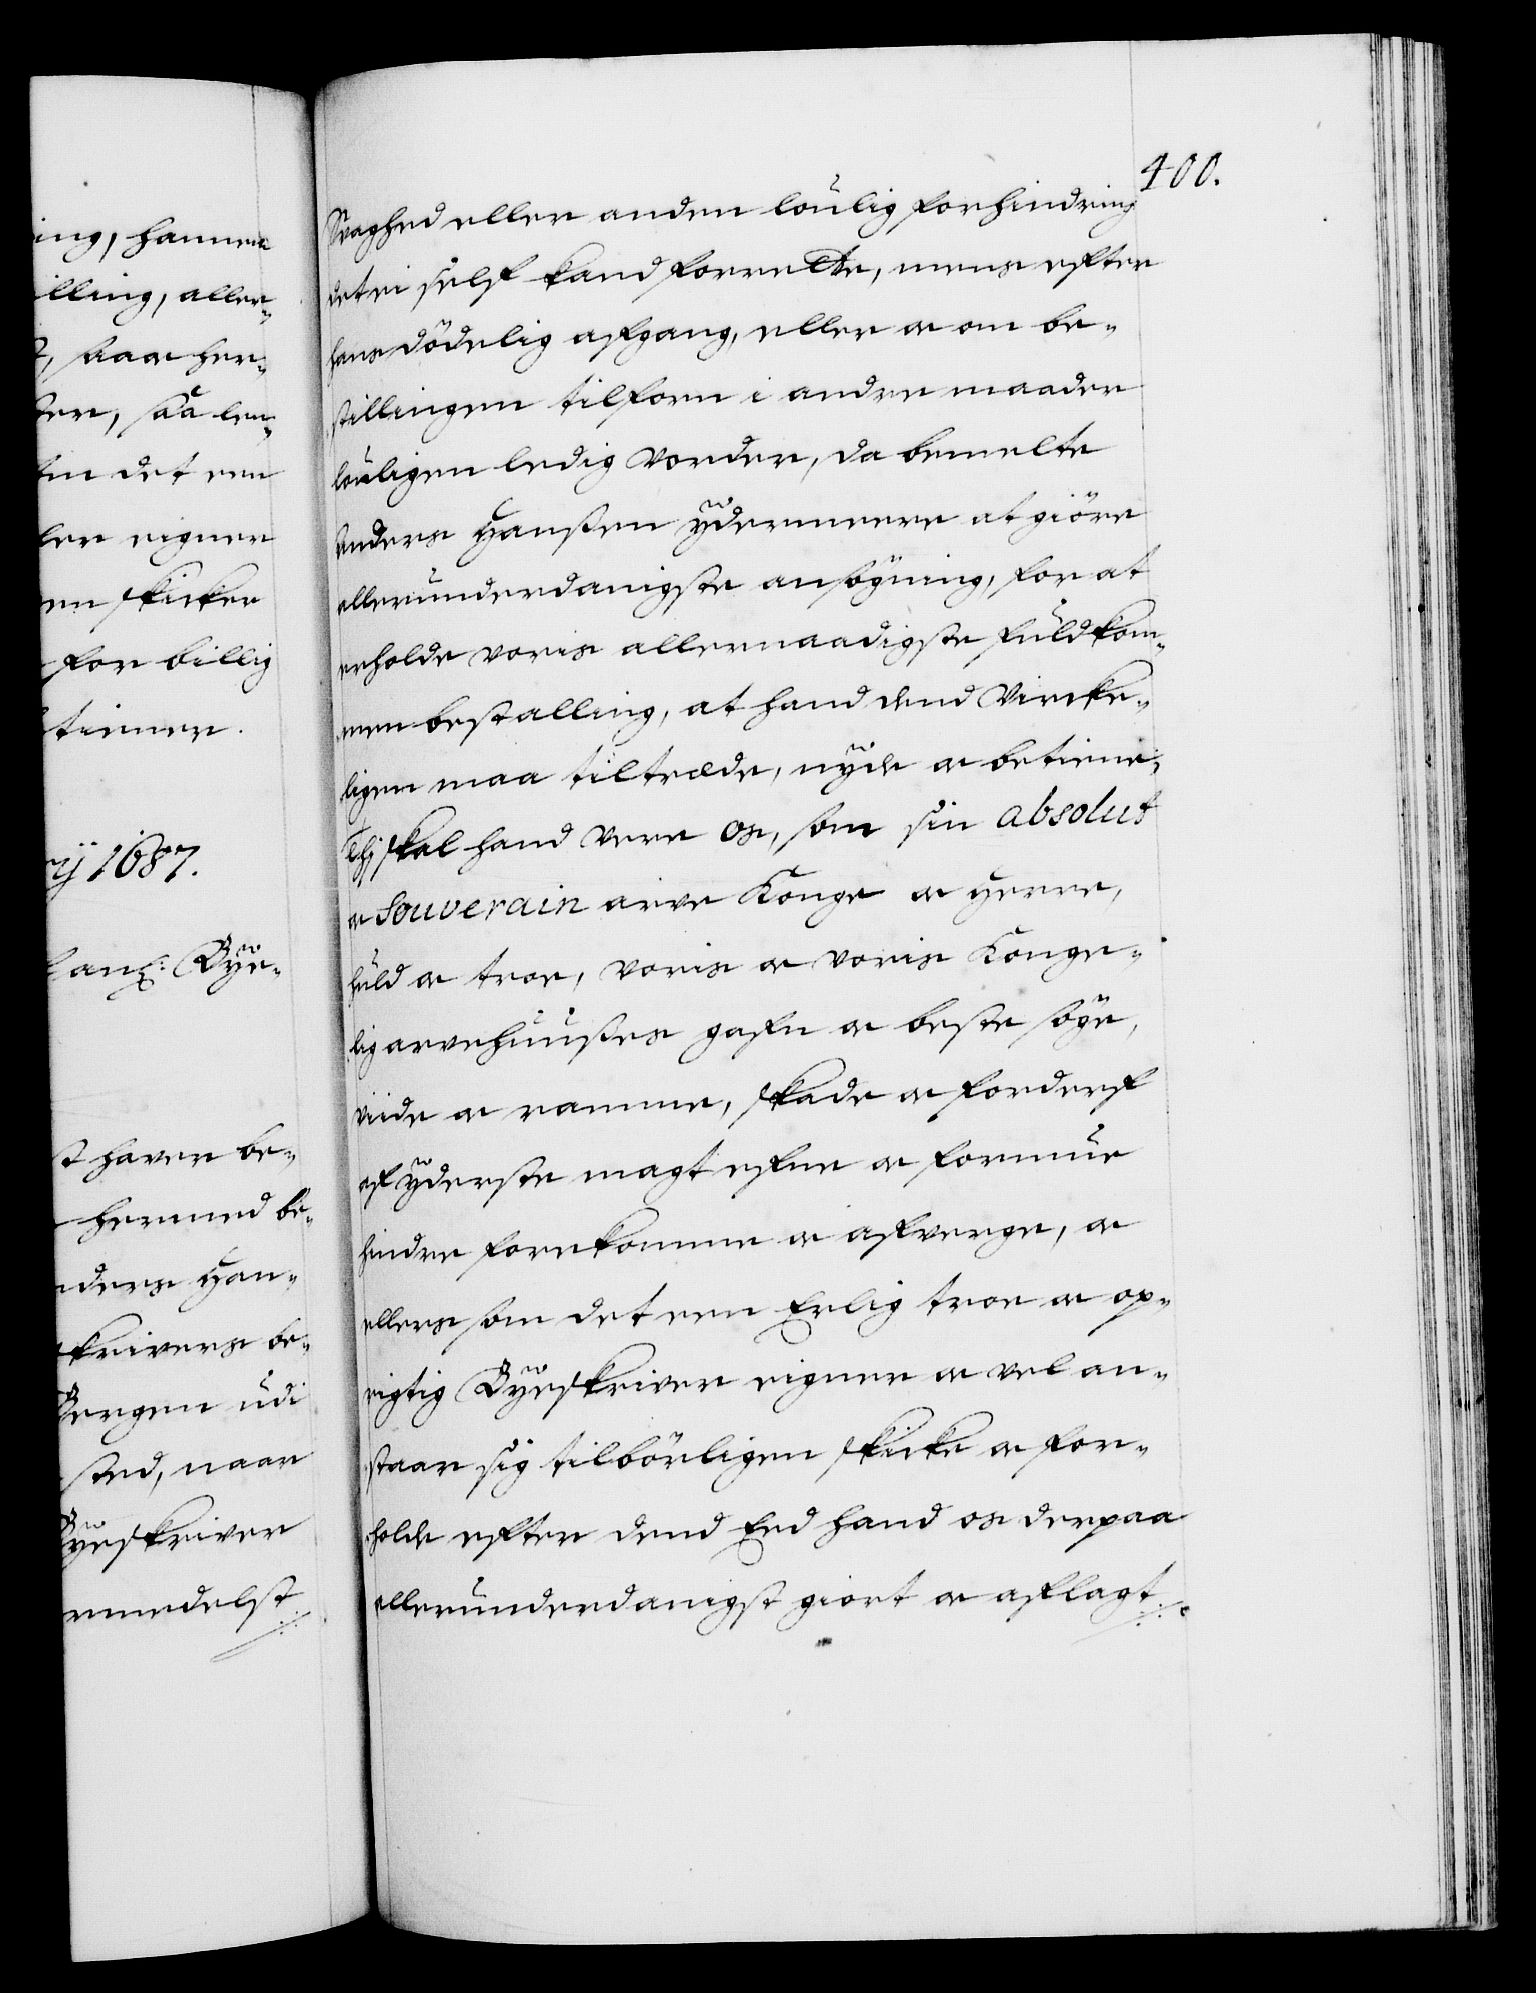 ing, hannem
illing, aller-
t, saa her-
ter, saa len-
det een
ler eigner
en skicker
for billig
tiener.
ry 1687.
Bÿe-
st haver be-
hermed be-
nders Han-
skrivers be-
Bergen udi
sted, naar
Bÿeskriver
rmedelst
400.
Svaghed eller anden loulig forhindring
det ei self kand forrette, mens efften
hans dödelig affgang, eller og om be-
stillingen tilforn i andre maader
louligen ledig vorder, da bemelte
Anders Hanßen ÿdermeere at giöre
allerunderdanigste ansögning, for at
erholde voris allernaadigste fuldkom-
men bestalling, at hand dend Vircke-
ligen maa tiltræde, nÿde og betiene;
Thj skal hand vere os, som sin absolut
og Souverain arve Konge og Herre,
huld og troe, voris og voris Konge-
lig arvehuußes gafn og beste söge,
viide og ramme, skade og forderf
af ÿderste magt efne og formue
hindre forekomme og affverge, og
ellers som det een Erlig troe og op-
rigtig Bÿeskriver eigner og vel an-
staar sig tilbörligen skicke og for-
holde effter dend Eed hand os derpaa
allerunderdanigst giort og afflagt